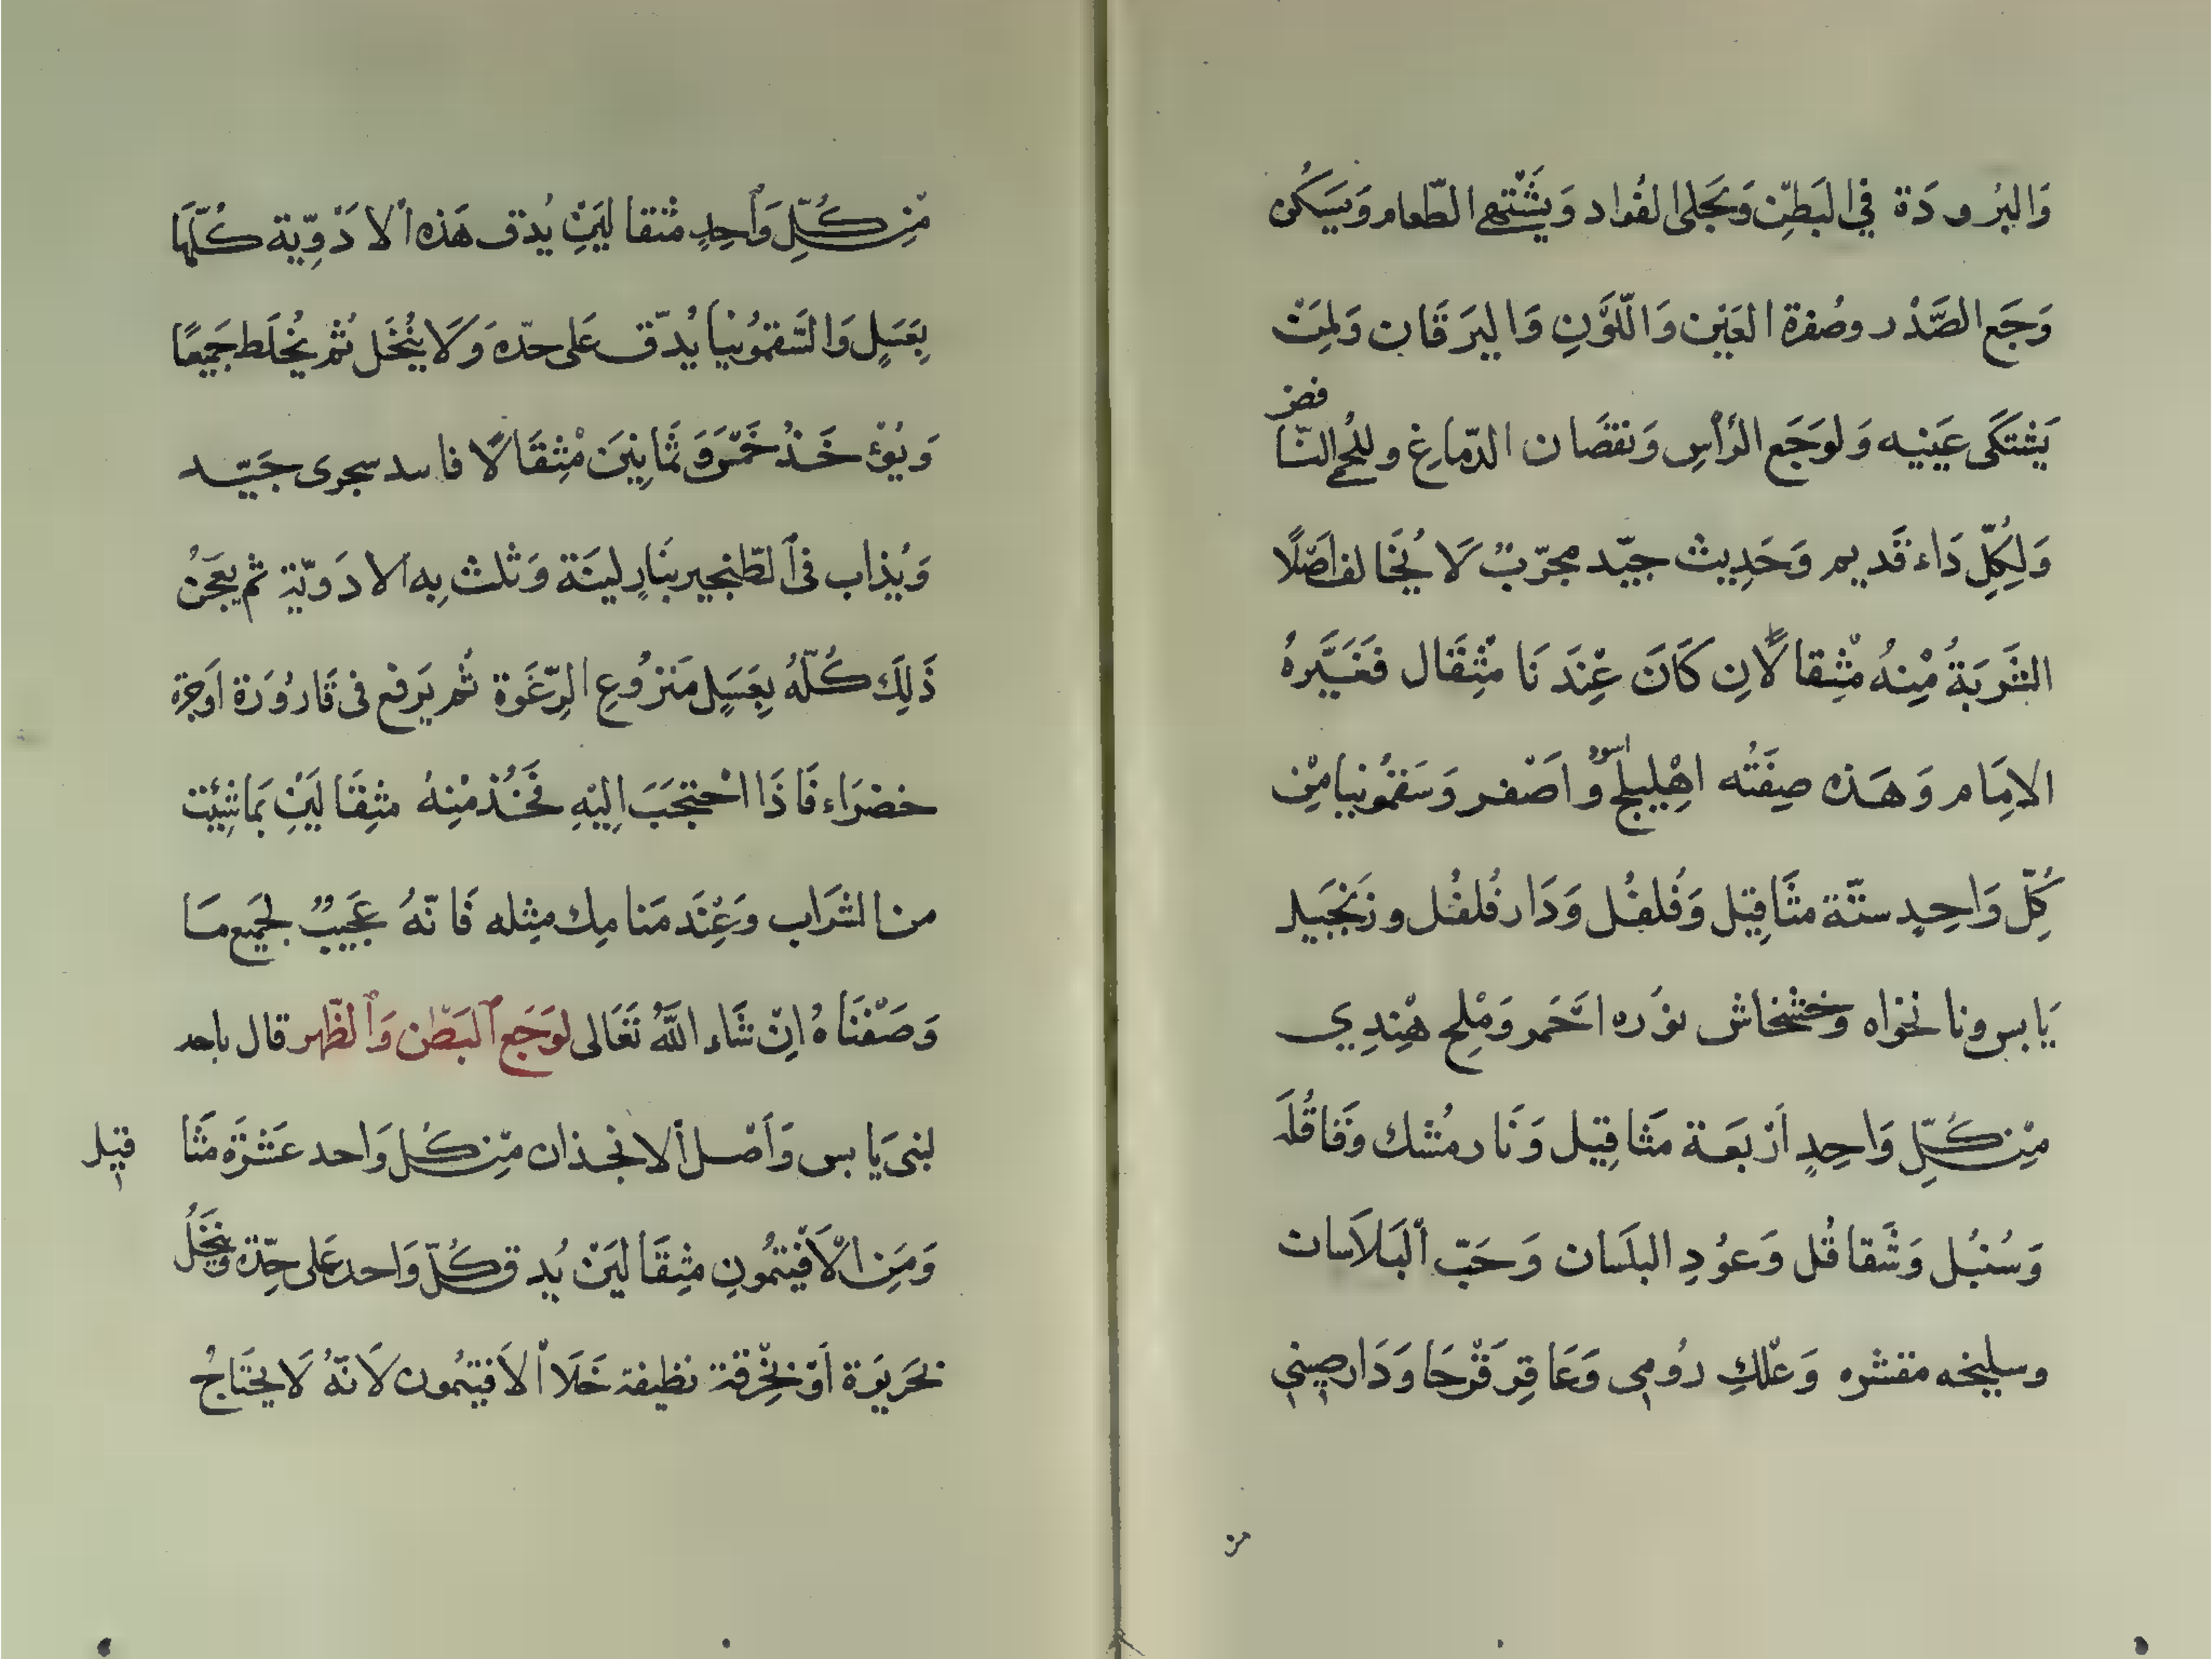 وَالبُرودَة في البَطنِ وَيَجلى الفُواد وَيَشْتَهي الطّعام وَيسَكن
وَجَع الصَّدْر وصُفرة العَيْن وَاللَّوْنِ وَاليرَقَان وَلِمَنْ
يَشتَكى عَينيه وَلوَجَع الرأسِ وَنقصَان الدّماغِ وللحُمى النّافض
وَلِكُلِّ دَاء قَديم وَحَدِيث جيّد مجرّبٌ لَا يُخَالف اَصْلًا
الشَربَةُ مْنِهُ مْثِقالَانِ كَانَ عِنْدَنَا مْثِقَال فَغَيَّرهُ
الاِمَام وَهَذه صِفَتُه اهِْليلج اسود وَاصَْفر وَسَقمُونيا مْنِ
كُلِّ وَاحِدٍ ستّة مثَاقِيل وَفُلفُل وَدَار فُلفُل وزَنجَبيل
يَابس ونانخواه وَخشْخاش نوُره احَّمر وَمْلِح هْنِدِي
مْنِ كُلِّ وَاحِدٍ ارَْبَعَة مَثاقِيل وَنَارمُشك وَقَاقُلَه
وَسُنبُل وَشَقاقُل وَعوُدِ البلَسان وَحَبّ اَلبَلاَسان
وسليخه مقشره وَعْلكِ رُومي وَعَاقِرَقْرحَا وَدَارصيني
مْنِ كُلِّ وَاَحِدٍ مثقالَينِْ يُدق هَذه اْلادَْوِيّة كُلّهَا
بِعَسَلٍ وَالسَّقمُونيا يُدّق عَلى حدّه وَلَا يُنْخَل ثُم يُخلَط جَميعًا
وَيُؤْخَذُ خَمَْس وَثَمَانِينَ مْثِقَالًا فاسد سجرى جَيّد
وَيُذاب في اَلطّنجير بنَارٍ لينَة وَثلث بِه الادَويّة ثم يعَجَنُ
ذَلَِك كُلّهُ بِعَسَلٍ مَنزوُعِ الرِّغَوة ثُم يَرفع فى قَارُورَة اَوجرّة
خضرَاء فَاذَا احْتجَبَ اِليْهِ فَخُذ مْنِهُ مثِقَالَينِْ بمَاشِئِت
من الشرَاب وَعْنَِد مَنامِك مِثله فَانّهُ عَجَيبٌ لجَميع مَا
وَصَفْنَاهُ اِنْ شَاء اللَّهُ تَعَالى لوَجَع اَلبَطْن وَاَلظّهر قال ياحد
لبنى يَابس وَاَصْل اَلانجذان مْنِ كُل وَاحد عَشَرَة مثَاقيل
وَمَِن الْاَفَيتمُونِ مثِقَالَينْ يُدق كُلّ وَاحد عَلى حِدّة وَينخَلُ
بحَريَرة اَوْ بخِرقَة نظيفة خَلَا اْلافيتمُون لَانّهُ لَا يحَتَاجُ